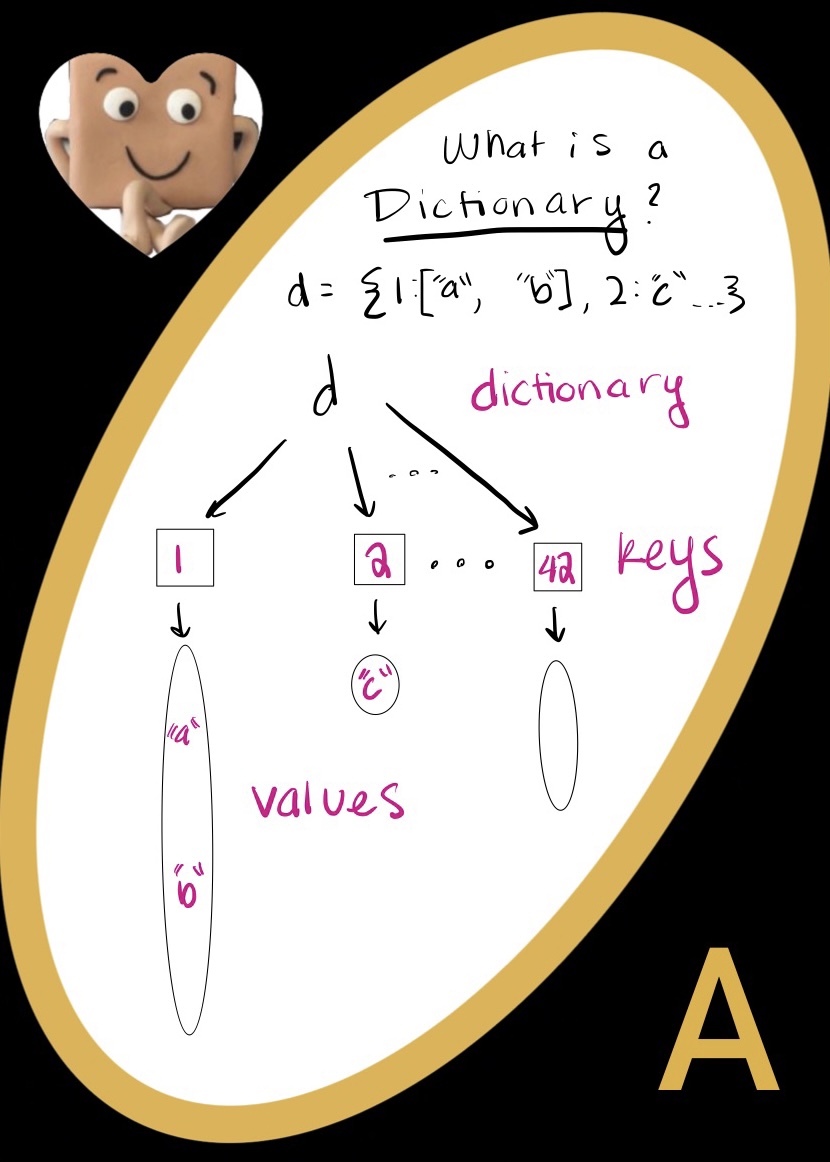 What is a
Dictionary?
d = {1:["a", "b"], 2:"c"...}
d
dictionary
...
1
2
...
42
keys
"a"
"c"
values
"b"
A